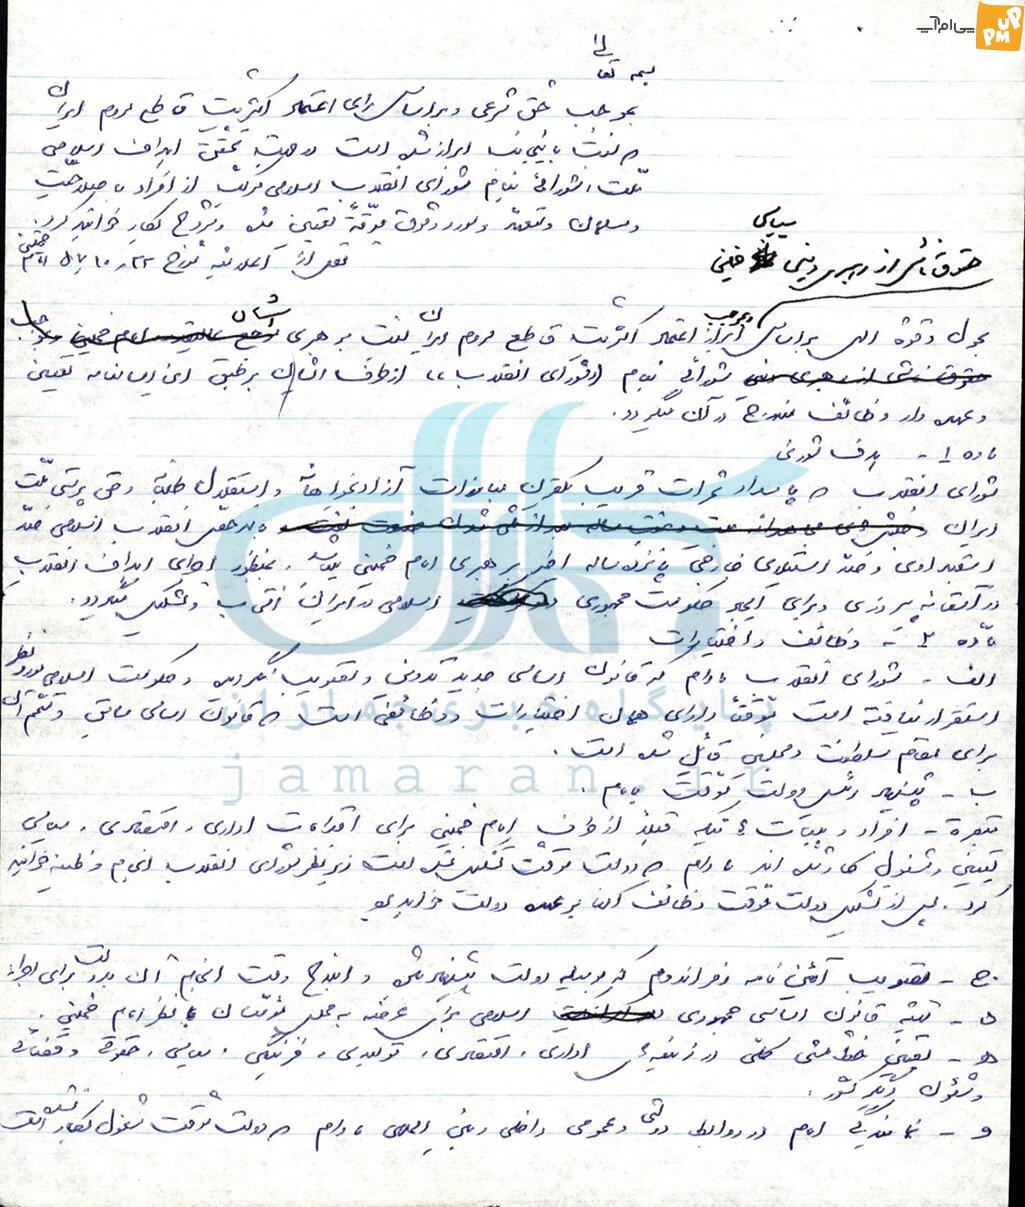 پی‌ام‌آپ
UP
PM
بسمه تعالی
بموجب حق شرعی و براساس رای اعتماد اکثریت قاطع مردم ایران
که نسبت باینجانب ابراز شده است در جهت تحقق اهداف اسلامی
ملت، شورائی بنام شورای انقلاب اسلامی مرکب از افراد با صلاحیت
و مسلمان و متعهد و مورد وثوق موقتاً تعیین شده و شروع بکار خواهند کرد.
نقل از اعلامیه مورخ ۲۲ر۱۰ر۵۷ امام خمینی
سیاسی
حقوق ناشی از رهبری دینی خمینی
بحول و قوه الهی براساس ابراز اعتماد اکثریت قاطع مردم ایران نسبت برهبری ایشان
شورائی بنام «شورای انقلاب» از طرف ایشان برطبق این اساسنامه تعیین
و عهده دار وظائف مندرج در آن میگردد.
ماده ۱ - هدف شوری
شورای انقلاب که پاسدار ثمرات قریب یکقرن مبارزات آزادیخواهانه و استقلال طلبانه و حق پرستی ملت
ایران انقلاب اسلامی ضد
استبدادی و ضد استیلای خارجی پانزده ساله اخیر برهبری امام خمینی میباشد، بمنظور اجرای اهداف انقلاب
در آستانه پیروزی و برای ایجاد حکومت جمهوری اسلامی در ایران انتخاب و تشکیل میگردد.
ماده ۲ - وظائف و اختیارات
الف - شورای انقلاب مادام که قانون اساسی جدید تدوین و تصویب نگردیده و حکومت اسلامی مورد نظر
استقرار نیافته است موقتاً دارای همان اختیارات و وظائفی است که قانون اساسی سابق و متمم آن
برای مقام سلطنت و مجلسین قائل شده است.
ب - پیشنهاد رئیس دولت موقت بامام.
تبصره - افراد و هیئات که قبلاً از طرف امام خمینی برای اقدامات اداری، اقتصادی، سیاسی
تعیین و مشغول کار شده اند مادام که دولت موقت تشکیل نشده است زیر نظر شورای انقلاب انجام وظیفه خواهند
کرد. پس از تشکیل دولت موقت وظائف آنها برعهده دولت خواهد بود
ج - تصویب آئین نامه رفراندوم که بوسیله دولت پیشنهاد شده و ابلاغ وقت انجام آن بدولت برای اجراء
د - تهیه قانون اساسی جمهوری اسلامی برای عرضه به مجلس مؤسسان با نظر امام خمینی.
ه - تعیین خط مشی کلی در زمینه های اداری، اقتصادی، تولیدی، فرهنگی، سیاسی، حقوقی و قضائی
و شئون دیگر کشور.
و - نمایندگی امام در روابط دولتی و عمومی داخلی و بین المللی مادام که دولت موقت مشغول بکار نشده است
جماران
پایگاه خبری جماران
jamaran.ir